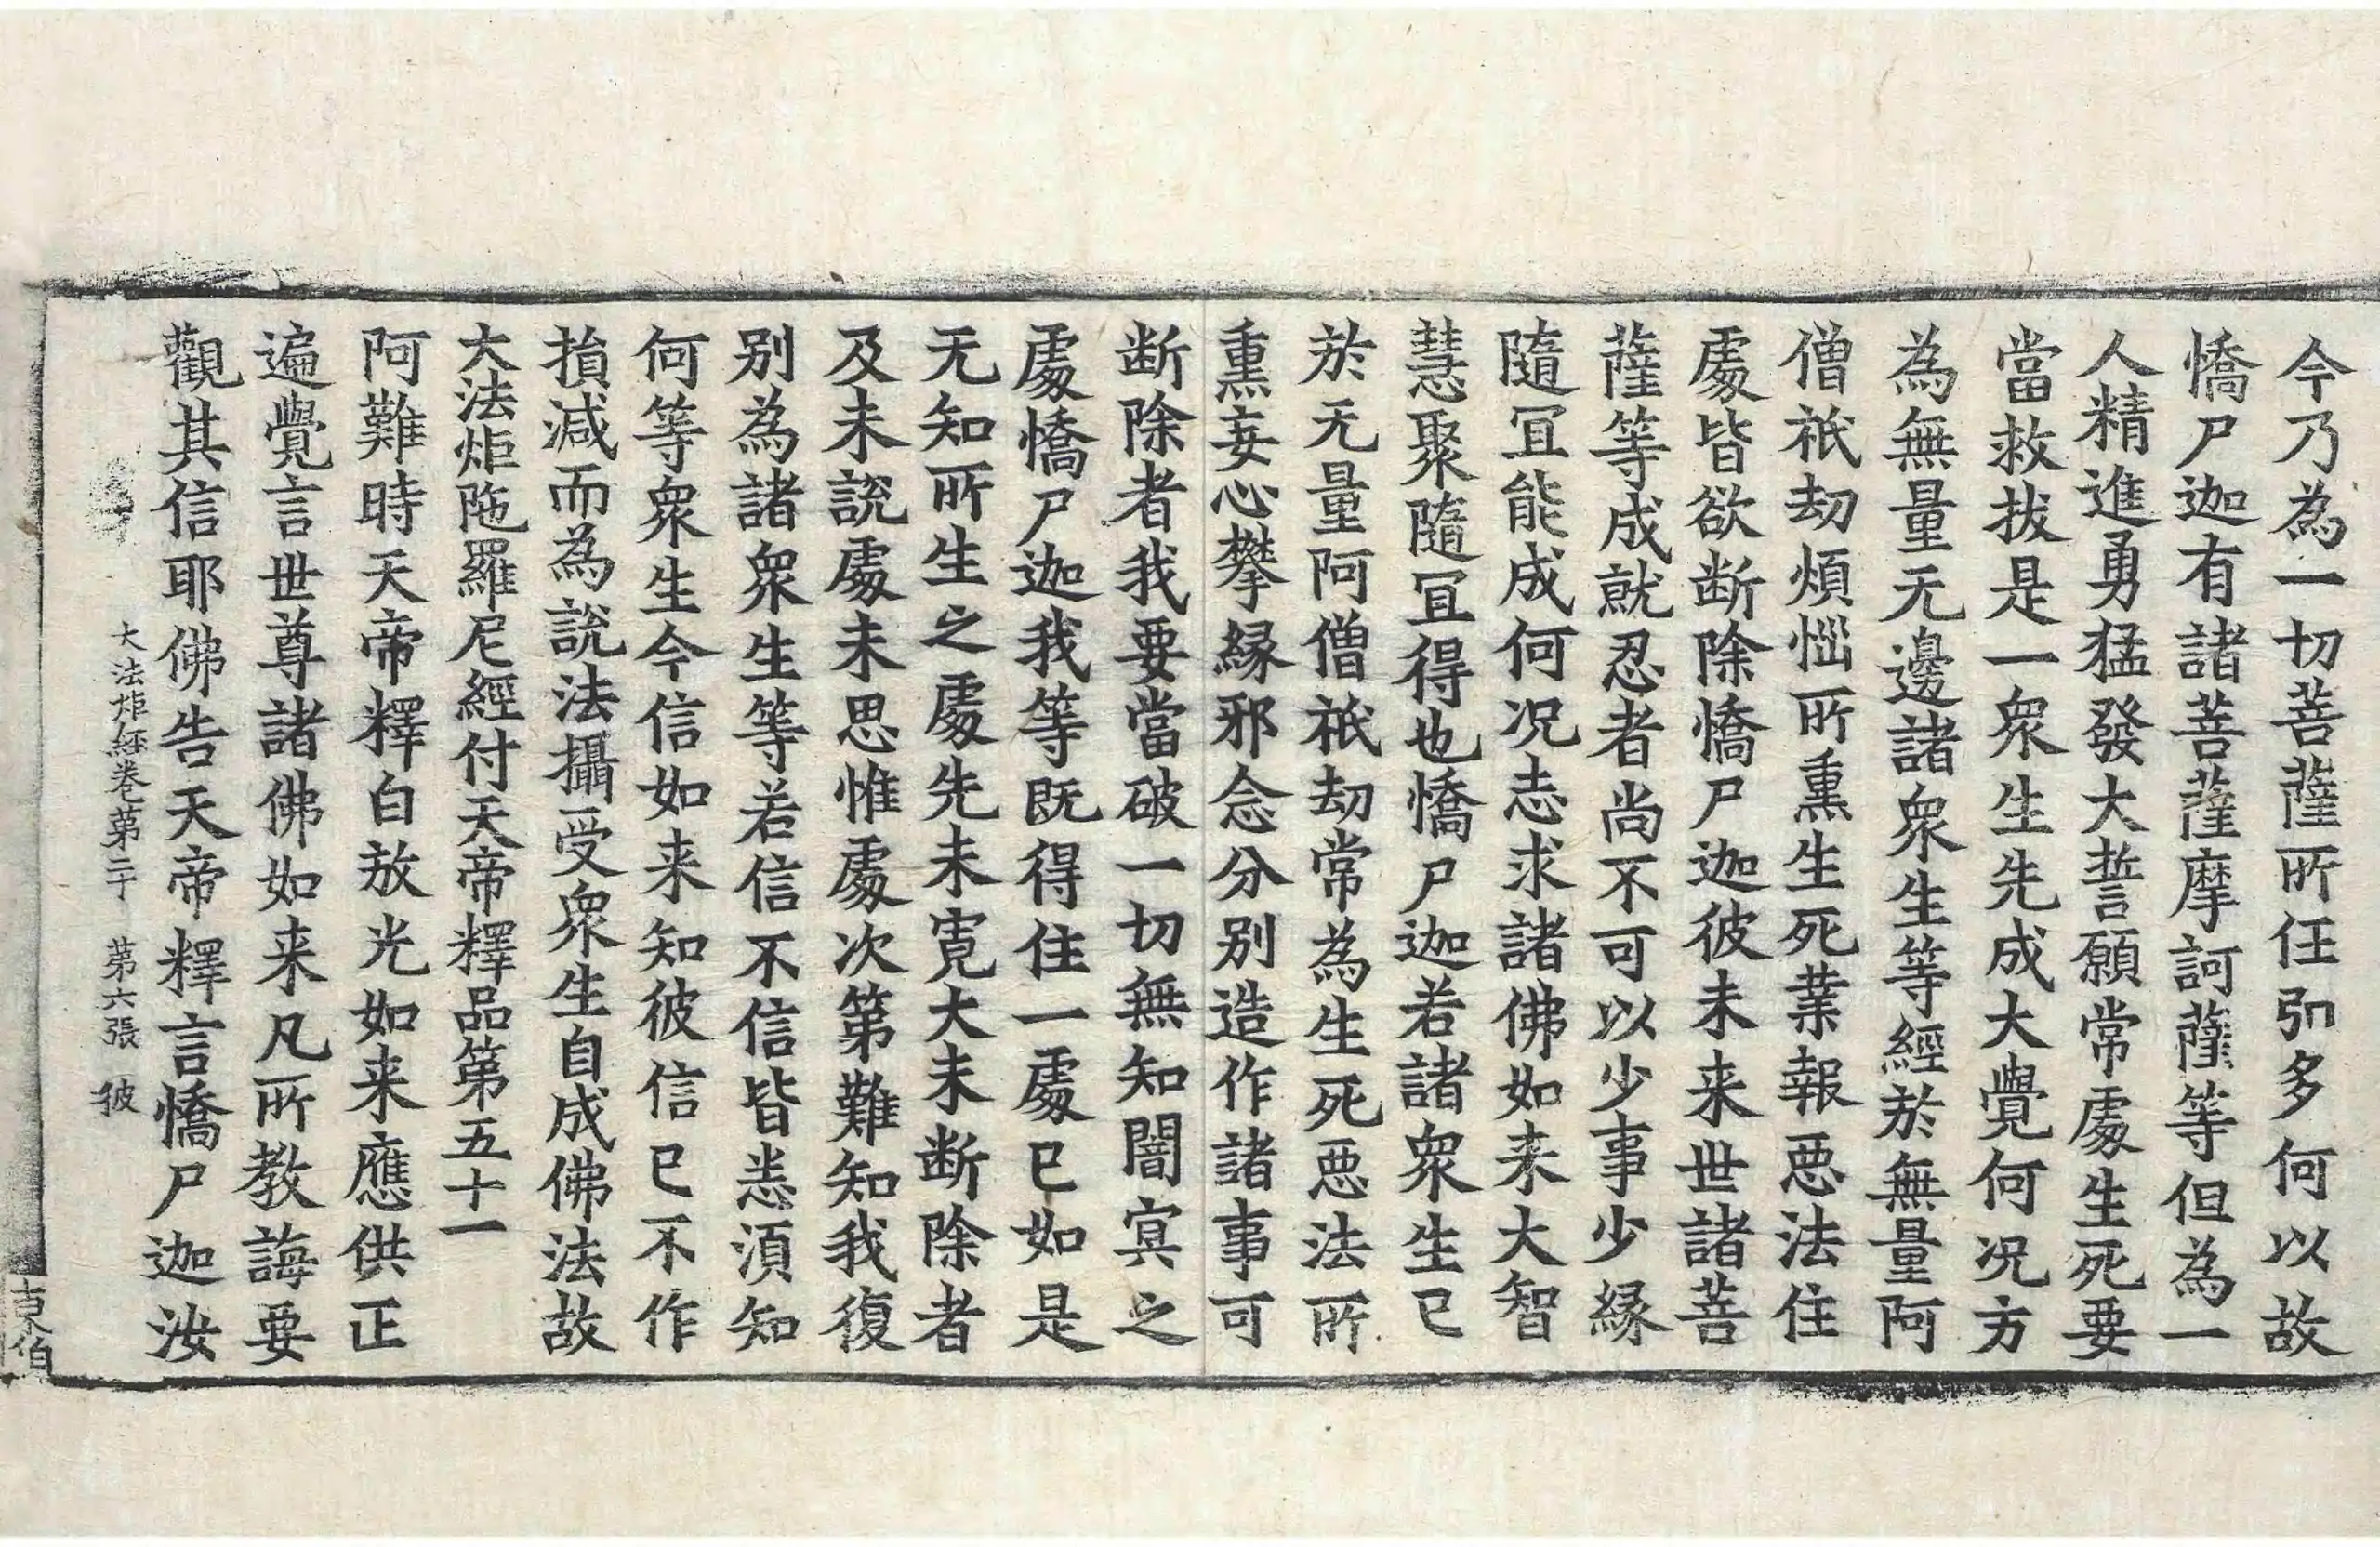 今乃為一切菩薩所任引多何以故
憍尸迦有諸菩薩摩訶薩等但為一
人精進勇猛發大誓願常處生死要
當救拔是一衆生先成大覺何況方
為無量无邊諸衆生等經於無量阿
僧祇劫煩惱所熏生死業報惡法住
處皆欲断除憍尸迦彼未来世諸菩
薩等成就忍者尚不可以少事少縁
隨冝能成何況志求諸佛如来大智
慧聚隨冝得也憍尸迦若諸衆生已
於无量阿僧祇劫常為生死惡法所
熏妄心攀縁邪念分别造作諸事可
断除者我要當破一切無知闇㝠之
處憍尸迦我等既得住一處已如是
无知所生之處先未寛大未断除者
及未説處未思惟處次第難知我復
别為諸衆生等若信不信皆悉湏知
何等衆生今信如来知彼信已不作
損減而為説法攝受衆生自成佛法故
大法炬陁羅尼經付天帝釋品第五十一
阿難時天帝釋白放光如来應供正
遍覺言世尊諸佛如来凡所教誨要
觀其信耶佛告天帝釋言憍尸迦汝
大法炬經卷第二十 第六張 彼
東伯